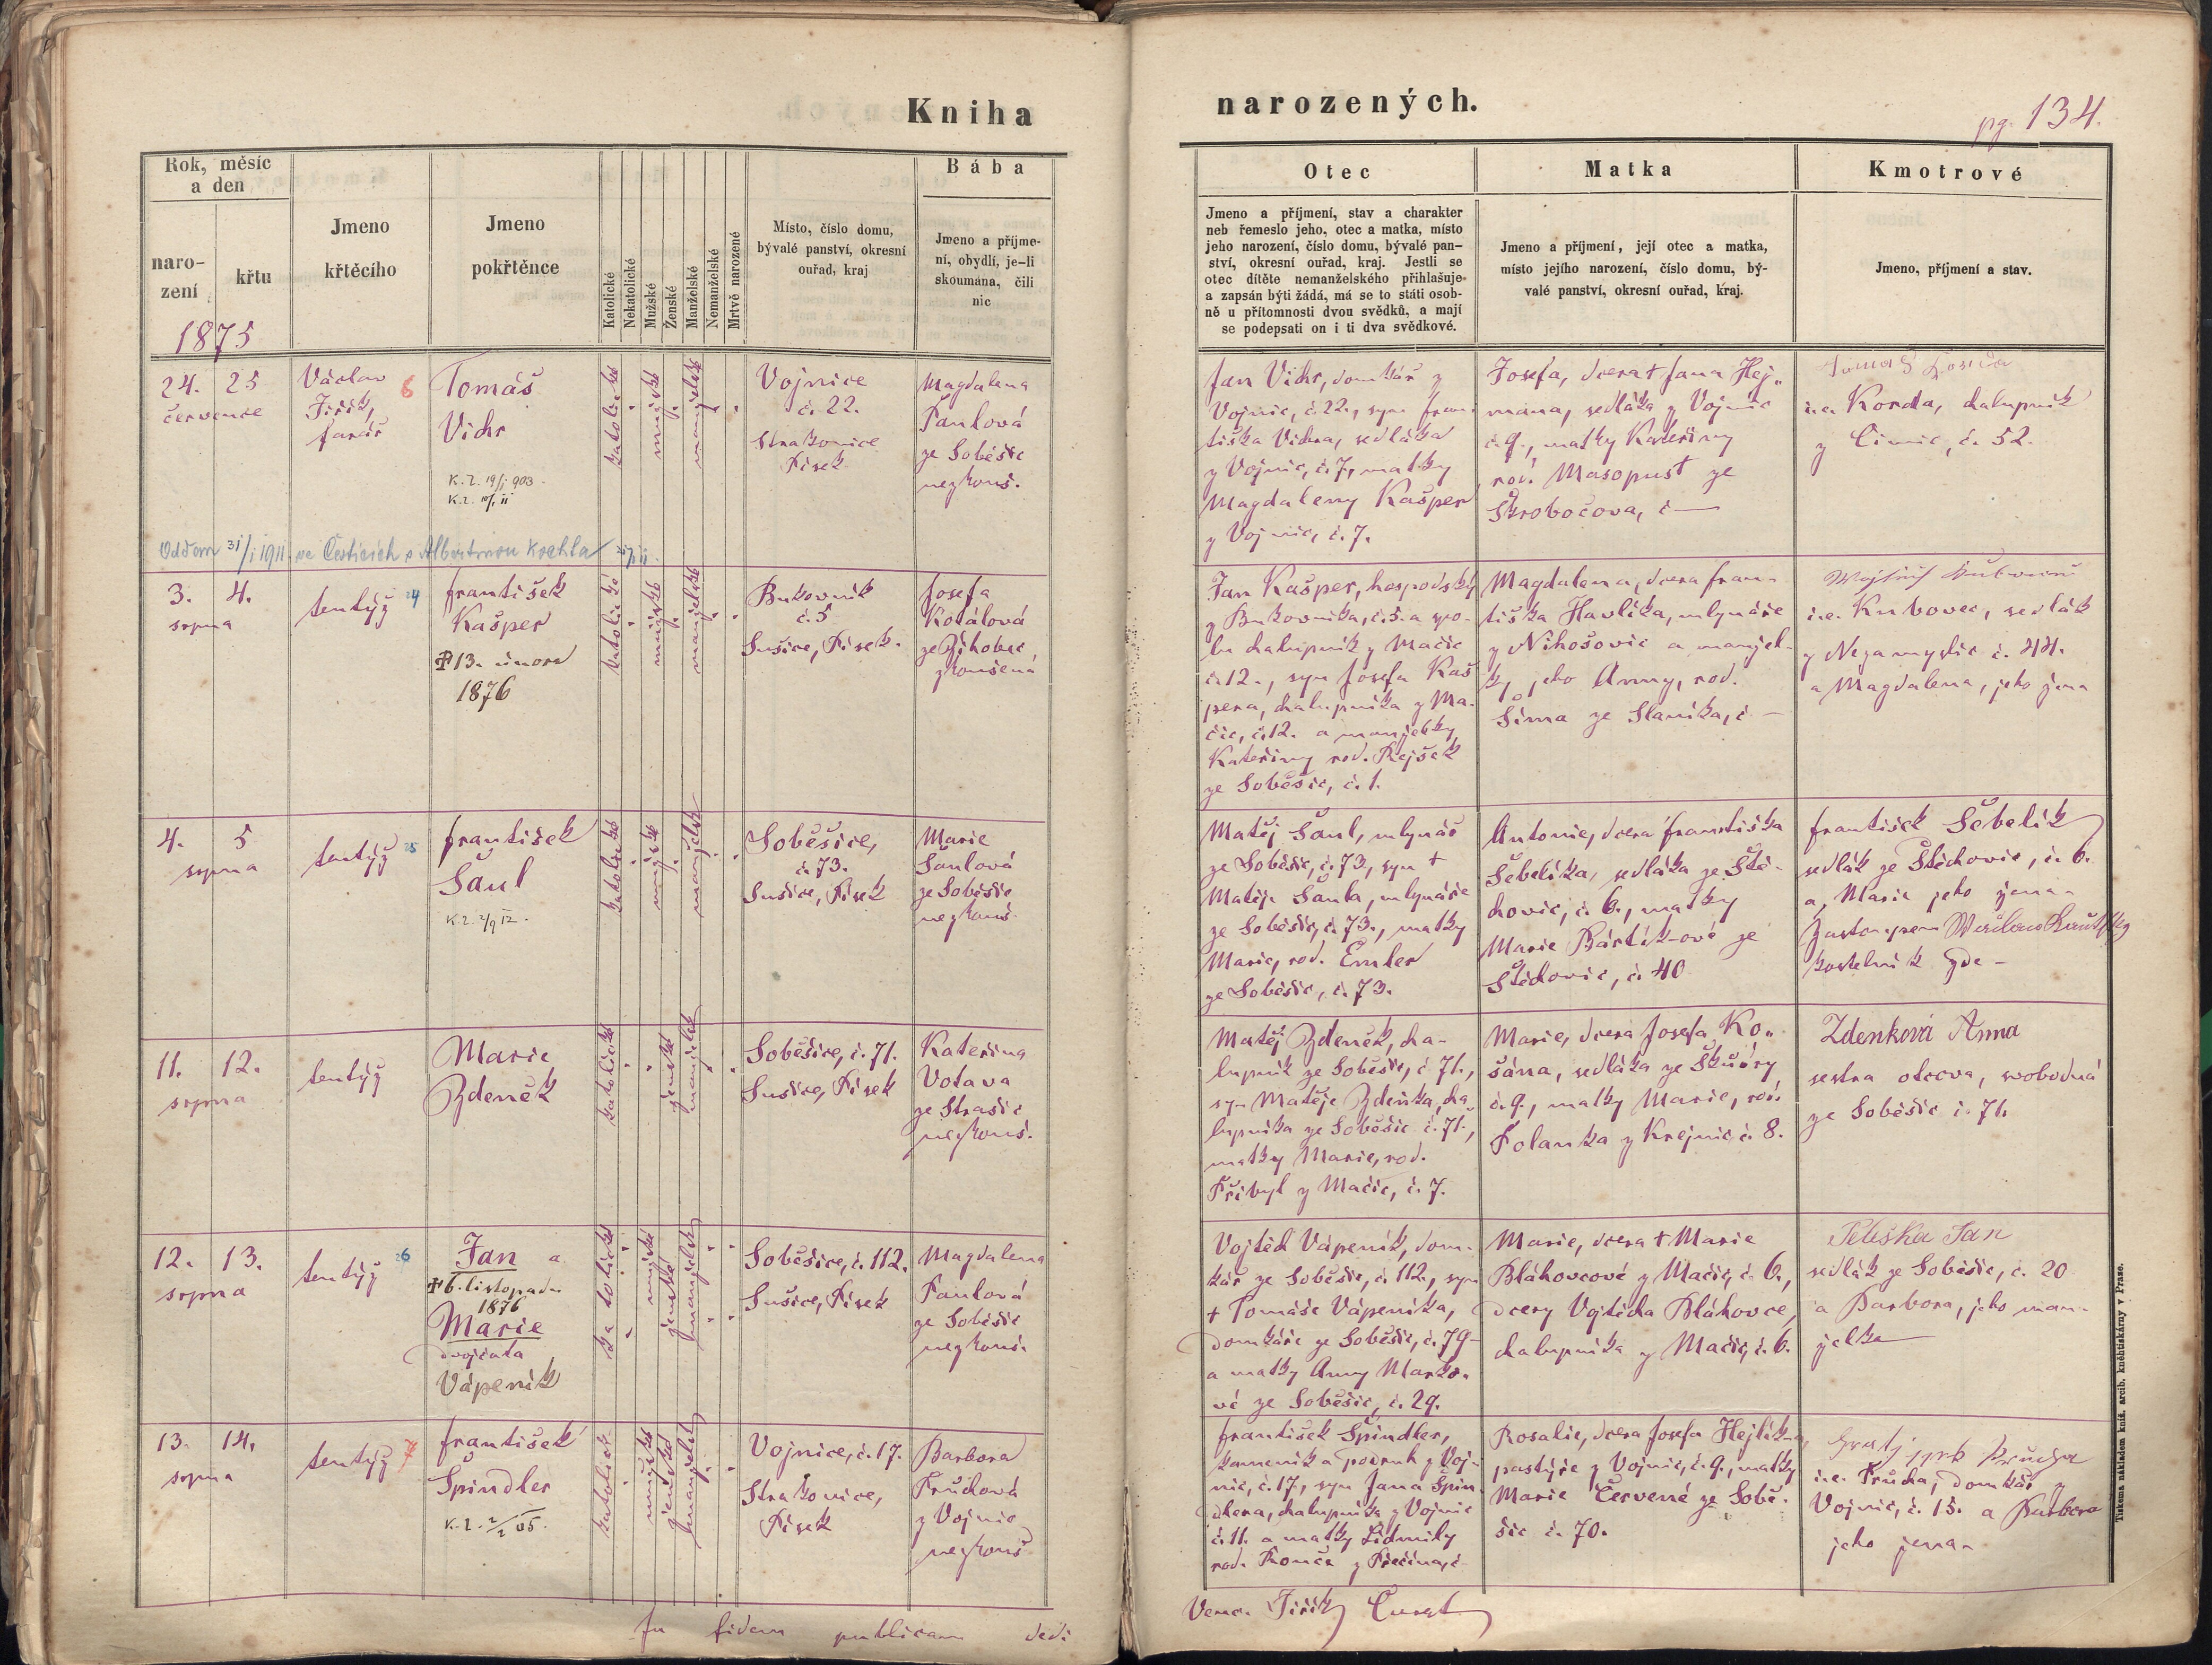 Kniha
narozených.
pg. 134.
Rok, měsíc
a den
naro-
zení
křtu
Jmeno
křtěcího
Jmeno
pokřtěnce
Katolické
Nekatolické
Mužské
Ženské
Manželské
Nemanželské
Mrtvě narozené
Místo, číslo domu,
bývalé panství, okresní
ouřad, kraj
Bába
Jmeno a příjme-
ní, obydlí, je-li
skoumána, čili
nic
Otec
Jmeno a příjmení, stav a charakter
neb řemeslo jeho, otec a matka, místo
jeho narození, číslo domu, bývalé pan-
ství, okresní ouřad, kraj. Jestli se
otec dítěte nemanželského přihlašuje
a zapsán býti žádá, má se to státi osob-
ně u přítomnosti dvou svědků, a mají
se podepsati on i ti dva svědkové.
Matka
Jmeno a příjmení, její otec a matka,
místo jejího narození, číslo domu, bý-
valé panství, okresní ouřad, kraj.
Kmotrové
Jmeno, příjmení a stav.
1875
24. 25
července
Václav
Jiřík,
farář
6
Tomáš
Vichr
K.l. 19/1 903.
katolické
mužské
manželské
Vojnice
č. 22.
Strakonice
Písek
Magdalena
Paulová
ze Soběšic
nezkouš.
Jan Vichr, domkář z
Vojnic, č. 22., syn Fran-
tiška Vichra, sedláka
z Vojnic, č. 7., matky
Magdaleny Kašper
z Vojnic, č. 7.
Josefa, dcera † Jana Hej„
mana, sedláka z Vojnic
č. 9., matky Kateřiny
roz. Masopust ze
Škrobočova, č —
i.e. Korda, chalupník
z Čimic, č. 52.
Oddán 31/1 1911. ve Češticích s Albertinou
3. 4.
srpna
tentýž
24
František
Kašper
† 13. února
1876
katolické
mužské
manželské
Bukovník
č. 5
Sušice, Písek.
Josefa
Kolálová
ze Žihobec
zkoušená
Jan Kašper, hospodský
z Bukovníka, č. 5. a spo-
lu chalupník z Mačic
č. 12., syn Josefa Kaš
pera, chalupníka z Ma-
čic, č. 12. a manželky
Kateřiny rod. Rejšek
ze Soběšic, č. 1.
Magdalena, dcera Fran-
tiška Havlíka, mlynáře
z Nihošovic a manžel-
ky jeho Anny, rod.
Šíma ze Slaníka, č —
i.e. Kubovec, sedlák
z Nezamyslic č. 44.
a Magdalena, jeho žena
4. 5
srpna
tentýž
25
František
Šaul
katolické
mužské
manželské
Soběšice,
č. 73.
Sušice, Písek
Marie
Šaulová
ze Soběšic
nezkouš.
Matěj Šaul, mlynář
ze Soběšic, č. 73., syn †
Matěje Šaula, mlynáře
ze Soběšic, č. 73., matky
Marie, rod. Emler
ze Soběšic, č. 73.
Antonie, dcera Františka
Šebelíka, sedláka ze Ště-
chovic, č. 6., matky
Marie Bártík-ové ze
Štěchovic, č. 40
František Šebelík
sedlák ze Štěchovic, č. 6.
a, Marie jeho žena
kostelník zde -
11. 12.
srpna
tentýž
Marie
Zdeněk
katolické
ženské
manželské
Soběšice, č. 71.
Sušice, Písek
Kateřina
Votava
ze Strašic
nezkouš.
Matěj Zdeněk, cha-
lupník ze Soběšic, č. 71.,
syn Matěje Zdeňka, cha
lupníka ze Soběšic č. 71.,
matky Marie, rod.
Přibyl z Mačic, č. 7.
Marie, dcera Josefa Ko„
šána, sedláka ze
č. 9., matky Marie, roz.
Polanka z Krejnic č. 8.
Zdenková Anna
sestra otcova, svobodná
ze Soběšic č. 71.
12. 13.
srpna
tentýž
26
Jan a
† 6. listopadu
1876
Marie
dvojčata
Vápeník
katolické
mužské
ženské
manželské
Soběšice, č. 112.
Sušice, Písek
Magdalena
Paulová
ze Soběšic
nezkouš.
Vojtěch Vápeník, dom-
kář ze Soběšic, č. 112., syn
† Tomáše Vápeníka,
domkáře ze Soběšic, č. 79-
a matky Anny Marko-
vé ze Soběšic, č. 29.
Marie, dcera † Marie
Bláhovcové z Mačic, č. 6.,
dcery Vojtěcha Bláhovce,
chalupníka z Mačic, č. 6.
Peleška Jan
sedlák ze Soběšic, č. 20
a Barbora, jeho man-
želka
13. 14.
srpna
tentýž
7
František
Špindler
K.l. 2/2 05.
katolické
mužské
manželské
Vojnice, č. 17.
Strakonice,
Písek
Barbora
Průchová
z Vojnic
nezkouš
František Špindler,
kameník a podruh z Voj-
nic, č. 17., syn Jana Špin
dlera, chalupníka z Vojnic
č. 11. a matky Lidmily
rod.
Rosalie, dcera Josefa Hejlík-a,
pastýře z Vojnic, č. 9., matky
Marie Červené ze Sobě-
šic č. 70.
i.e. Průcha, domkář z
Vojnic, č. 15. a Barbora
jeho žena
In fidem publicam dedi
Venc. Jiřík, Curat
Tiskema nákladem kníž. arcib. kněhtiskárny v Praze.